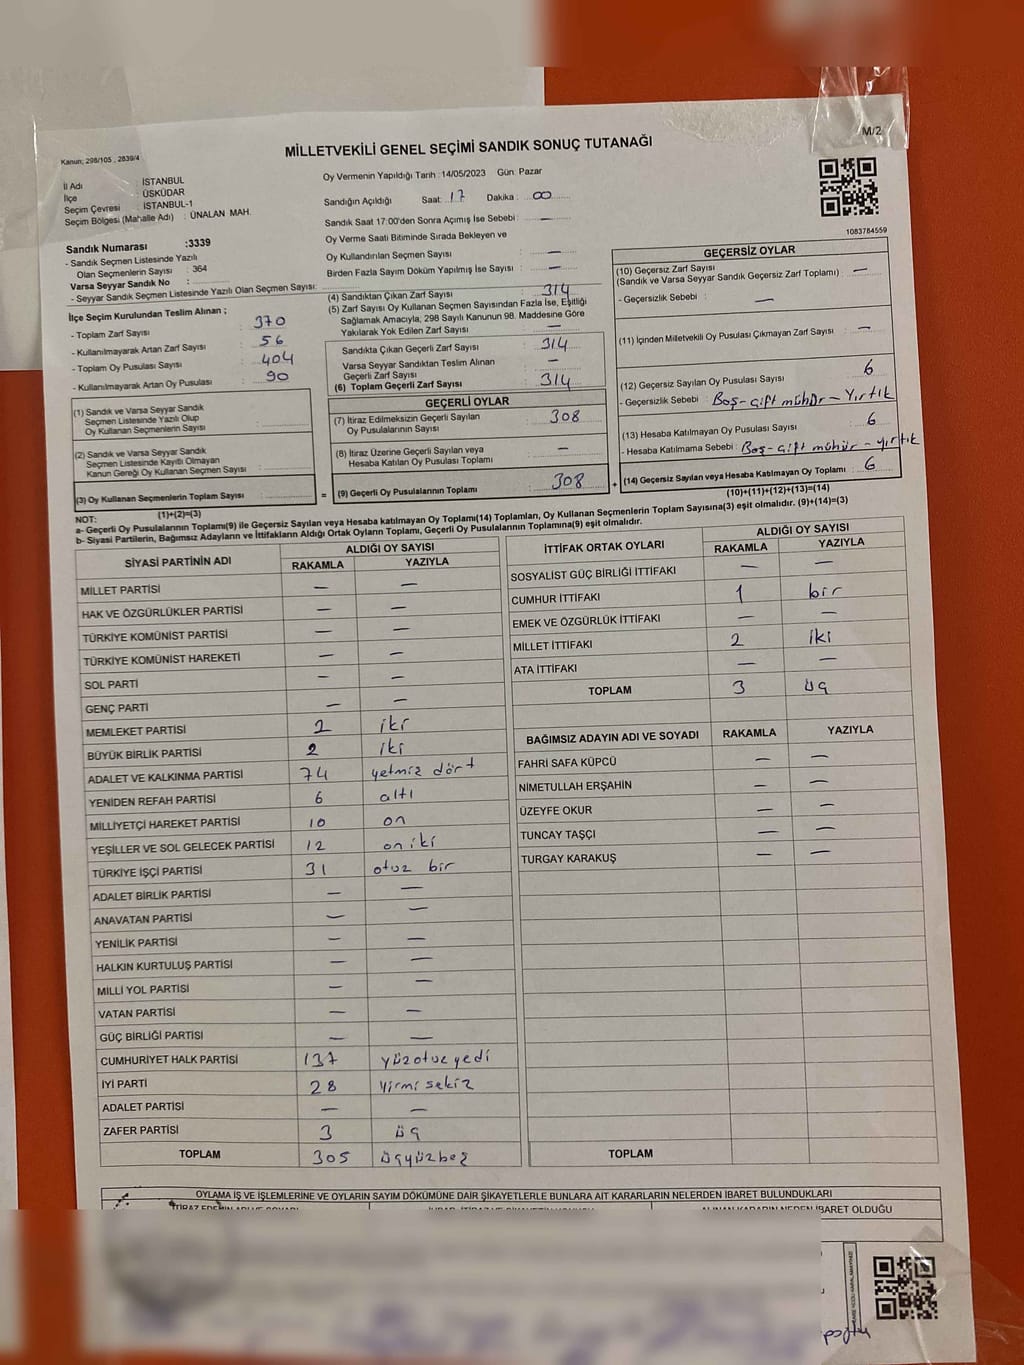 M/2
Kanun; 298/105 , 2839/4
MİLLETVEKİLİ GENEL SEÇİMİ SANDIK SONUÇ TUTANAĞI
İl Adı : İSTANBUL
İlçe : ÜSKÜDAR
Seçim Çevresi : İSTANBUL-1
Seçim Bölgesi (Mahalle Adı) : ÜNALAN MAH.
Sandık Numarası :3339
- Sandık Seçmen Listesinde Yazılı
Olan Seçmenlerin Sayısı : 364
Varsa Seyyar Sandık No :
- Seyyar Sandık Seçmen Listesinde Yazılı Olan Seçmen Sayısı:
İlçe Seçim Kurulundan Teslim Alınan ;
- Toplam Zarf Sayısı : 370
- Kullanılmayarak Artan Zarf Sayısı : 56
- Toplam Oy Pusulası Sayısı : 404
- Kullanılmayarak Artan Oy Pusulası : 90
(1) Sandık ve Varsa Seyyar Sandık
Seçmen Listesinde Yazılı Olup
Oy Kullanan Seçmenlerin Sayısı :
(2) Sandık ve Varsa Seyyar Sandık
Seçmen Listesinde Kayıtlı Olmayan
Kanun Gereği Oy Kullanan Seçmen Sayısı :
(3) Oy Kullanan Seçmenlerin Toplam Sayısı :
(1)+(2)=(3)
Oy Vermenin Yapıldığı Tarih :14/05/2023 Gün: Pazar
Sandığın Açıldığı Saat: 17 Dakika : 00
Sandık Saat 17:00'den Sonra Açımış İse Sebebi : —
Oy Verme Saati Bitiminde Sırada Bekleyen ve
Oy Kullandırılan Seçmen Sayısı : —
Birden Fazla Sayım Döküm Yapılmış İse Sayısı : —
(4) Sandıktan Çıkan Zarf Sayısı : 314
(5) Zarf Sayısı Oy Kullanan Seçmen Sayısından Fazla İse, Eşitliği
Sağlamak Amacıyla, 298 Sayılı Kanunun 98. Maddesine Göre
Yakılarak Yok Edilen Zarf Sayısı : —
Sandıkta Çıkan Geçerli Zarf Sayısı : 314
Varsa Seyyar Sandıktan Teslim Alınan
Geçerli Zarf Sayısı : —
(6) Toplam Geçerli Zarf Sayısı : 314
GEÇERLİ OYLAR
(7) İtiraz Edilmeksizin Geçerli Sayılan
Oy Pusulalarının Sayısı : 308
(8) İtiraz Üzerine Geçerli Sayılan veya
Hesaba Katılan Oy Pusulası Toplamı : —
= (9) Geçerli Oy Pusulalarının Toplamı : 308 +
1083784559
GEÇERSİZ OYLAR
(10) Geçersiz Zarf Sayısı
(Sandık ve Varsa Seyyar Sandık Geçersiz Zarf Toplamı) : —
- Geçersizlik Sebebi : —
(11) İçinden Milletvekili Oy Pusulası Çıkmayan Zarf Sayısı : —
(12) Geçersiz Sayılan Oy Pusulası Sayısı : 6
- Geçersizlik Sebebi : Boş-çift mühür-Yırtık
(13) Hesaba Katılmayan Oy Pusulası Sayısı : 6
- Hesaba Katılmama Sebebi : Boş-çift mühür-yırtık
(14) Geçersiz Sayılan veya Hesaba Katılmayan Oy Toplamı : 6
(10)+(11)+(12)+(13)=(14)
NOT:
a- Geçerli Oy Pusulalarının Toplamı(9) ile Geçersiz Sayılan veya Hesaba katılmayan Oy Toplamı(14) Toplamları, Oy Kullanan Seçmenlerin Toplam Sayısına(3) eşit olmalıdır. (9)+(14)=(3)
b- Siyasi Partilerin, Bağımsız Adayların ve İttifakların Aldığı Ortak Oyların Toplamı, Geçerli Oy Pusulalarının Toplamına(9) eşit olmalıdır.
SİYASİ PARTİNİN ADI ALDIĞI OY SAYISI
RAKAMLA YAZIYLA
MİLLET PARTİSİ — —
HAK VE ÖZGÜRLÜKLER PARTİSİ — —
TÜRKİYE KOMÜNİST PARTİSİ — —
TÜRKİYE KOMÜNİST HAREKETİ — —
SOL PARTİ — —
GENÇ PARTİ — —
MEMLEKET PARTİSİ 2 iki
BÜYÜK BİRLİK PARTİSİ 2 iki
ADALET VE KALKINMA PARTİSİ 74 yetmiz dört
YENİDEN REFAH PARTİSİ 6 altı
MİLLİYETÇİ HAREKET PARTİSİ 10 on
YEŞİLLER VE SOL GELECEK PARTİSİ 12 on iki
TÜRKİYE İŞÇİ PARTİSİ 31 otuz bir
ADALET BİRLİK PARTİSİ — —
ANAVATAN PARTİSİ — —
YENİLİK PARTİSİ — —
HALKIN KURTULUŞ PARTİSİ — —
MİLLİ YOL PARTİSİ — —
VATAN PARTİSİ — —
GÜÇ BİRLİĞİ PARTİSİ — —
CUMHURİYET HALK PARTİSİ 137 yüzotuzyedi
İYİ PARTİ 28 yirmi sekiz
ADALET PARTİSİ — —
ZAFER PARTİSİ 3 üç
TOPLAM 305 üçyüzbeş
İTTİFAK ORTAK OYLARI ALDIĞI OY SAYISI
RAKAMLA YAZIYLA
SOSYALİST GÜÇ BİRLİĞİ İTTİFAKI — —
CUMHUR İTTİFAKI 1 bir
EMEK VE ÖZGÜRLÜK İTTİFAKI — —
MİLLET İTTİFAKI 2 iki
ATA İTTİFAKI — —
TOPLAM 3 üç
BAĞIMSIZ ADAYIN ADI VE SOYADI RAKAMLA YAZIYLA
FAHRİ SAFA KÜPCÜ — —
NİMETULLAH ERŞAHİN — —
ÜZEYFE OKUR — —
TUNCAY TAŞÇI — —
TURGAY KARAKUŞ — —
TOPLAM
OYLAMA İŞ VE İŞLEMLERİNE VE OYLARIN SAYIM DÖKÜMÜNE DAİR ŞİKAYETLERLE BUNLARA AİT KARARLARIN NELERDEN İBARET BULUNDUKLARI
ALINAN KARARIN NEDEN İBARET OLDUĞU